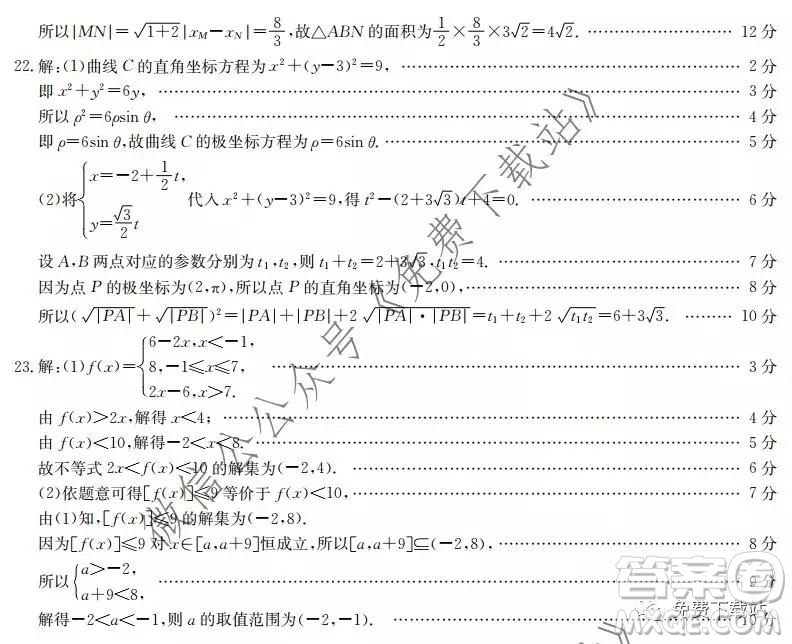 所以|MN|=√(1+2)|x_M-x_N|=8/3,故△ABN 的面积为1/2×8/3×3√2=4√2. …… 12 分
22. 解:(1)曲线 C 的直角坐标方程为 x²+(y-3)²=9, …… 2 分
即 x²+y²=6y, …… 3 分
所以 ρ²=6ρsin θ, …… 4 分
即 ρ=6sin θ,故曲线 C 的极坐标方程为 ρ=6sin θ. …… 5 分
(2)将{x=-2+1/2 t, y=√3/2 t 代入 x²+(y-3)²=9,得 t²-(2+3√3)t+4=0. …… 6 分
设 A,B 两点对应的参数分别为 t₁,t₂,则 t₁+t₂=2+3√3,t₁t₂=4. …… 7 分
因为点 P 的极坐标为(2,π),所以点 P 的直角坐标为(-2,0), …… 8 分
所以(√|PA|+√|PB|)²=|PA|+|PB|+2√(|PA|·|PB|)=t₁+t₂+2√(t₁t₂)=6+3√3. …… 10 分
23. 解:(1)f(x)={6-2x,x<-1, 8,-1≤x≤7, 2x-6,x>7. …… 3 分
由 f(x)>2x,解得 x<4; …… 4 分
由 f(x)<10,解得-2<x<8. …… 5 分
故不等式 2x<f(x)<10 的解集为(-2,4). …… 6 分
(2)依题意可得[f(x)]≤9 等价于 f(x)<10, …… 7 分
由(1)知,[f(x)]≤9 的解集为(-2,8).
因为[f(x)]≤9 对 x∈[a,a+9]恒成立,所以[a,a+9]⊆(-2,8), …… 8 分
所以{a>-2, a+9<8, …… 9 分
解得-2<a<-1,则 a 的取值范围为(-2,-1). …… 10 分
微信公众号《免费下载站》
答案圈
MXQE.COM
免费下载站